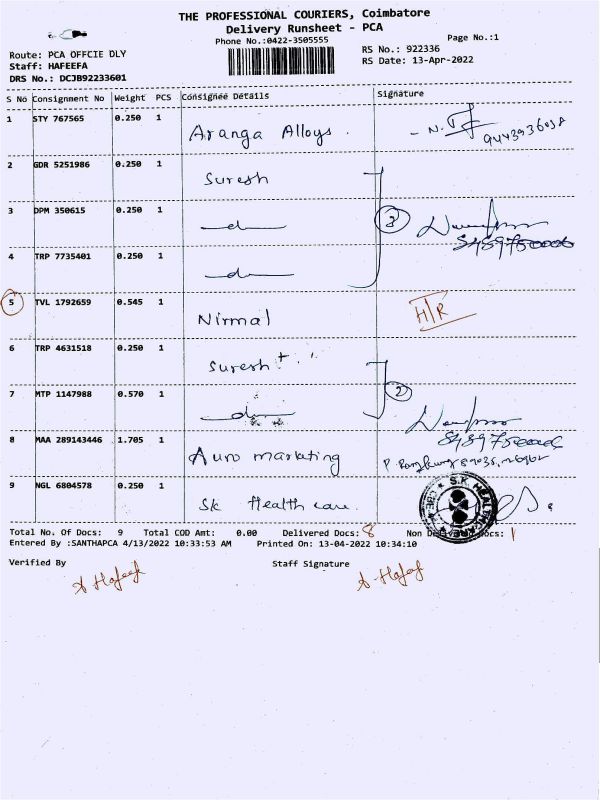 THE PROFESSIONAL COURIERS, Coimbatore
Delivery Runsheet - PCA
Phone No.:0422-3505555
Page No.:1
Route: PCA OFFCIE DLY
RS No.: 922336
Staff: HAFEEFA
RS Date: 13-Apr-2022
DRS No.: DCJB92233601
S No Consignment No Weight PCS Consignee Details Signature
1 STY 767565 0.250 1 Aranga Alloys.
2 GDR 5251986 0.250 1 Suresh
3 DPM 350615 0.250 1 3
4 TRP 7735401 0.250 1
5 TVL 1792659 0.545 1 Nirmal H/R
6 TRP 4631518 0.250 1 Suresh
7 MTP 1147988 0.570 1 2
8 MAA 289143446 1.705 1 Auro marketing
9 NGL 6804578 0.250 1 Sk Health care.
Total No. Of Docs: 9 Total COD Amt: 0.00 Delivered Docs: 8 Non Delivered Docs: 1
Entered By :SANTHAPCA 4/13/2022 10:33:53 AM Printed On: 13-04-2022 10:34:10
Verified By Staff Signature
A Hafeef A Hafeef